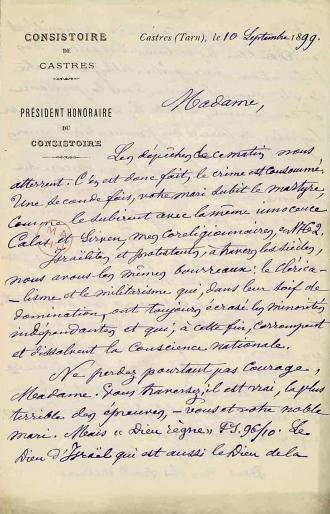 CONSISTOIRE
DE
CASTRES
Castres (Tarn), le 10 Septembre 1899.
PRÉSIDENT HONORAIRE
DU
CONSISTOIRE
Madame,
Les dépêches de ce matin nous
atterrent. C'en est donc fait, le crime est consommé.
Une seconde fois, votre mari subit le martyre
comme le subirent avec la même innocence
Calas et Sirven, mes coreligionnaires, en 1762.
Israëlites et Protestants, à travers les siècles,
nous avons les mêmes bourreaux: le Clérica-
-lisme et le militarisme qui, dans leur soif de
domination, ont toujours écrasé les minorités
indépendantes et qui, à cette fin, corrompent
et dissolvent la Conscience nationale.
Ne perdez pourtant pas courage,
Madame. Vous traversez, il est vrai, la plus
terrible des épreuves, – vous et votre noble
mari. Mais « Dieu règne » Ps. 96/10. Le
Dieu d'Israël qui est aussi le Dieu de la